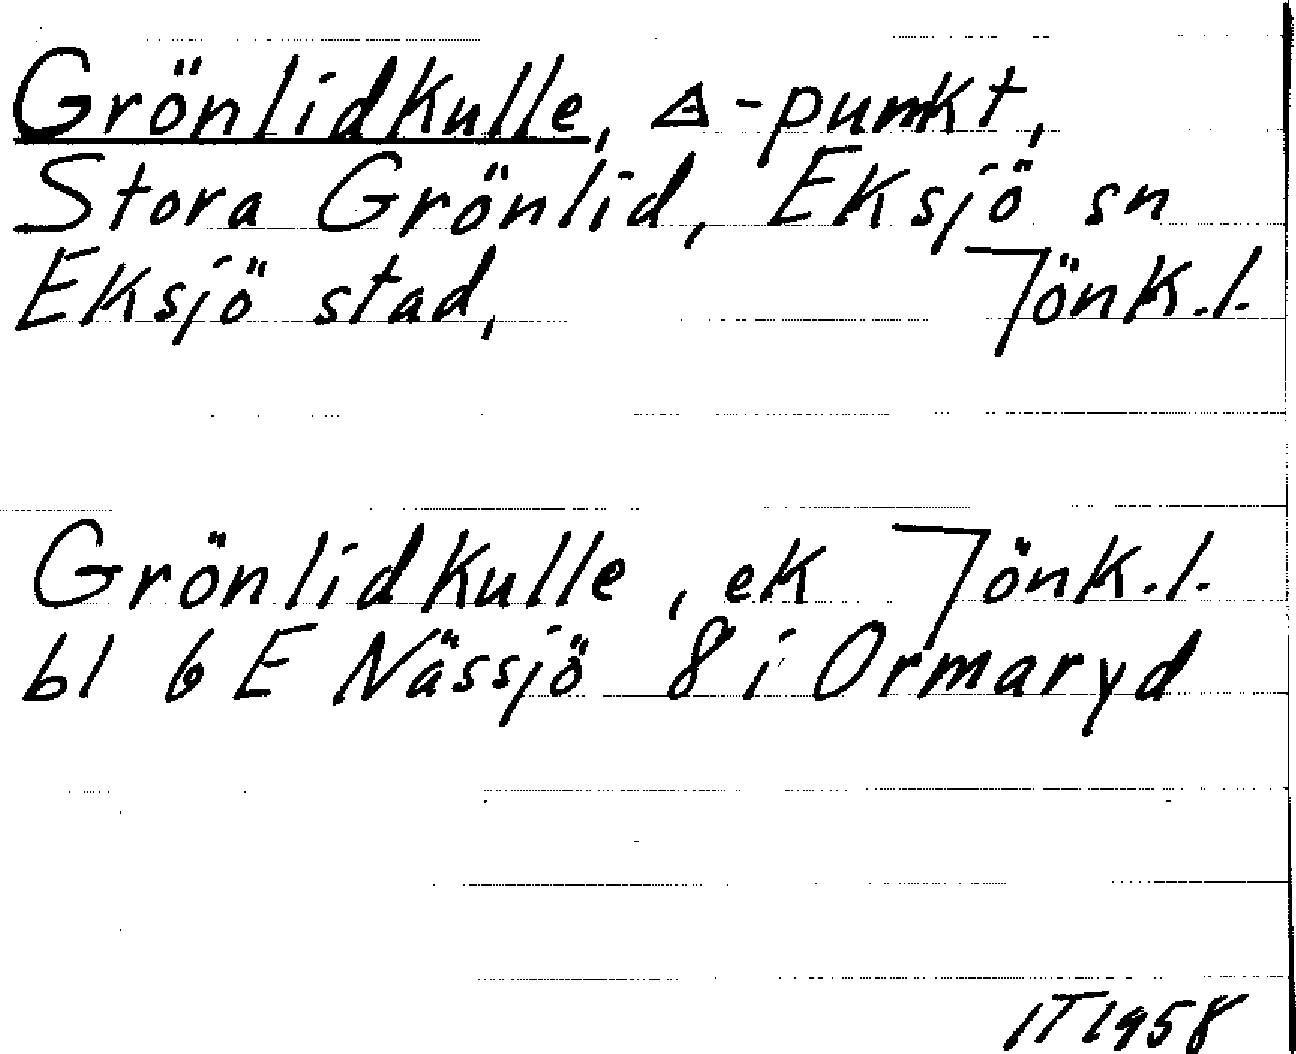 Grönlidkulle, △-punkt,
Stora Grönlid, Eksjö sn
Eksjö stad, Jönk.l.
Grönlidkulle, ek Jönk.l.
bl 6 E Nässjö 8 i Ormaryd
IT 1958